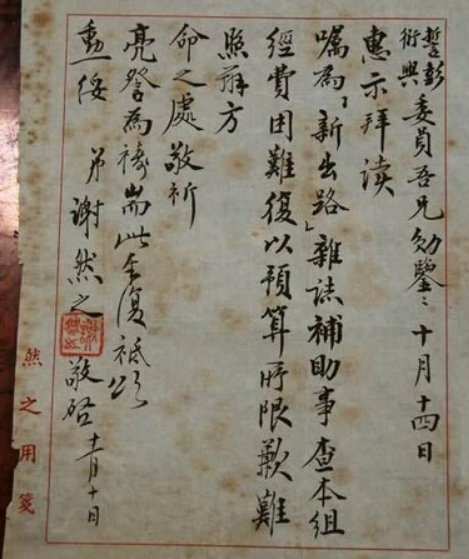 誓彭
衍與 委員吾兄勛鑒：十月十四日
惠示拜读
嘱為「新出路」雜誌補助事查本組
經費困難復以預算所限歉難
照辦方
命之處敬祈
亮詧為禱耑此奉復祗頌
勳綏
弟謝然之敬啓 十一月十日
然之用箋